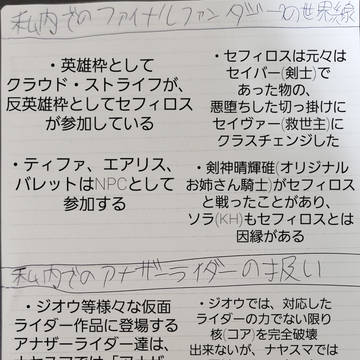 私内でのファイナルファンタジーの世界線
・英雄枠として
クラウド・ストライフが、
反英雄枠としてセフィロス
が参加している
・セフィロスは元々は
セイバー(剣士)で
あった物の、
悪堕ちした切っ掛けに
セイヴァー(救世主)に
クラスチェンジした
・ティファ、エアリス、
バレットはNPCとして
参加する
・剣神晴輝碓(オリジナル
お姉さん騎士)がセフィロス
と戦ったことがあり、
ソラ(KH)もセフィロスとは
因縁がある
私内でのアナザーライダーの扱い
・ジオウ等様々な仮面
ライダー作品に登場する
アナザーライダー達は、
・ジオウでは、対応した
ライダーの力でない限り
核(コア)を完全破壊
出来ないが、ナヤスマでは